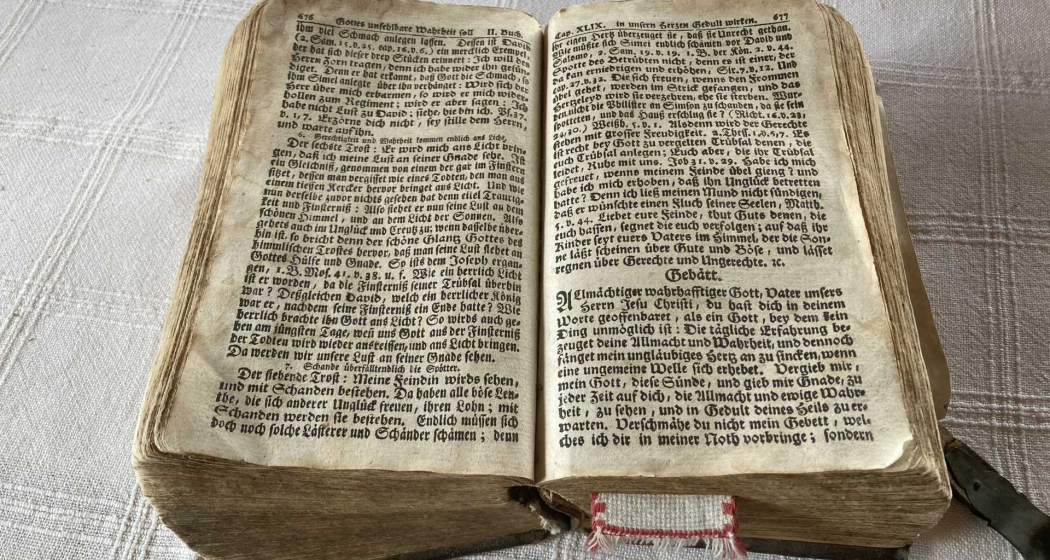 676 Gottes unfehlbare Wahrheit soll II. Buch
ihm viel Schmach anlegen lassen. Dessen ist David
(2. Sam. 15. v. 25. cap. 16. v. 6.) ein mercklich Exempel,
der hat sich dieser drey Stücken erinnert: Ich will des
Herrn Zorn tragen, denn ich habe wider ihn gesün-
diget. Denn er hat erkannt, daß Gott die Schmach, so
ihm Simei anlegte über ihn verhänget: Wird sich der
Herr über mich erbarmen, so wird er mich wider-
hollen zum Regiment; wird er aber sagen: Ich
habe nicht Lust zu David; siehe, hie bin ich. Ps. 37.
v. 1, 7. Erzörne dich nicht, sey stille dem Herrn,
und warte auf ihn.
6. Gerechtigkeit und Wahrheit kommen endlich ans Licht.
Der sechste Trost: Er wird mich ans Licht brin-
gen, daß ich meine Lust an seiner Gnade sehe. Ist
ein Gleichniß, genommen von einem der gar im Finstern
sitzet, dessen man vergisset wie eines Todten, den man aus
einem tieffen Kercker hervor bringet ans Licht. Und wie
nun derselbe zuvor nichts gesehen hat denn eitel Traurig-
keit und Finsterniß: Also siehet er nun seine Lust an dem
schönen Himmel, und an dem Licht der Sonnen. Also
gehets auch im Unglück und Creutz zu; wenn dasselbe über-
hin ist, so bricht denn der schöne Glantz Gottes des
himmlischen Trostes hervor, daß man seine Lust siehet an
Gottes Hülfe und Gnade. So ists dem Joseph ergan-
gen, 1. B. Mos. 41. v. 38. u. f. Wie ein herrlich Licht
ist er worden, da die Finsterniß seiner Trübsal überhin
war? Deßgleichen David, welch ein herrlicher König
war er, nachdem seine Finsterniß ein Ende hatte? Wie
herrlich brachte ihn Gott ans Licht? So wirds auch ge-
hen am jüngsten Tage, wen̄ uns Gott aus der Finsterniß
der Todten wird wieder ausreissen, und ans Licht bringen.
Da werden wir unsere Lust an seiner Gnade sehen.
7. Schande überfällt endlich die Spötter.
Der siebende Trost: Meine Feindin wirds sehen,
und mit Schanden bestehen. Da haben alle böse Leu-
the, die sich anderer Unglück freuen, ihren Lohn; mit
Schanden werden sie bestehen. Endlich müssen sich
doch noch solche Lästerer und Schänder schämen; denn
Cap. XLIX. in unsern Herzen Gedult wirken. 677
ihr eigen Hertz überzeuget sie, daß sie Unrecht gethan.
Wie müßte sich Simei endlich schämen vor David und
Salomo, 2. Sam. 19. v. 19. 1. B. der Kön. 2. v. 44.
Spotte des Betrübten nicht, denn es ist einer, der
da kan erniedrigen und erhöhen, Sir. 7. v. 12. Und
cap. 27. v. 32. Die sich freuen, wenns den Frommen
übel gehet, werden im Strick gefangen, und das
Hertzeleyd wird sie verzehren, ehe sie sterben. Wur-
den nicht die Philister an Simson zu schanden, da sie sein
spotteten, und das Hauß erschlug sie? (Richt. 16. v. 23.
24. 30.) Weißh. 5. v. 1. Alsdenn wird der Gerechte
stehen mit grosser Freudigkeit. 2. Thess. 1. v. 5, 7. Es
ist recht bey Gott zu vergelten Trübsal denen, die
euch Trübsal anlegen; Euch aber, die ihr Trübsal
leidet, Ruhe mit uns. Job 31. v. 29. Habe ich mich
gefreuet, wenns meinem Feinde übel gieng? und
habe ich mich erhoben, daß ihn Unglück betretten
hatte? Denn ich ließ meinen Mund nicht sündigen,
daß er wünschte einen Fluch seiner Seelen, Matth.
5. v. 44. Liebet eure Feinde, thut Guts denen, die
euch hassen, segnet die euch verfolgen; auf daß ihr
Kinder seyt euers Vaters im Himmel, der die Son-
ne läßt scheinen über Gute und Böse, und lässet
regnen über Gerechte und Ungerechte. ꝛc.
Gebätt.
Allmächtiger wahrhafftiger Gott, Vater unsers
Herrn Jesu Christi, du hast dich in deinem
Worte geoffenbaret, als ein Gott, bey dem kein
Ding unmöglich ist: Die tägliche Erfahrung be-
zeuget deine Allmacht und Wahrheit, und dennoch
fänget mein ungläubiges Hertz an zu sincken, wenn
eine ungemeine Welle sich erhebet. Vergieb mir,
mein Gott, diese Sünde, und gieb mir Gnade, zu
jeder Zeit auf dich, die Allmacht und ewige Wahr-
heit, zu sehen, und in Gedult deines Heils zu er-
warten. Verschmähe du nicht mein Gebett, wel-
ches ich dir in meiner Noth vorbringe; sondern